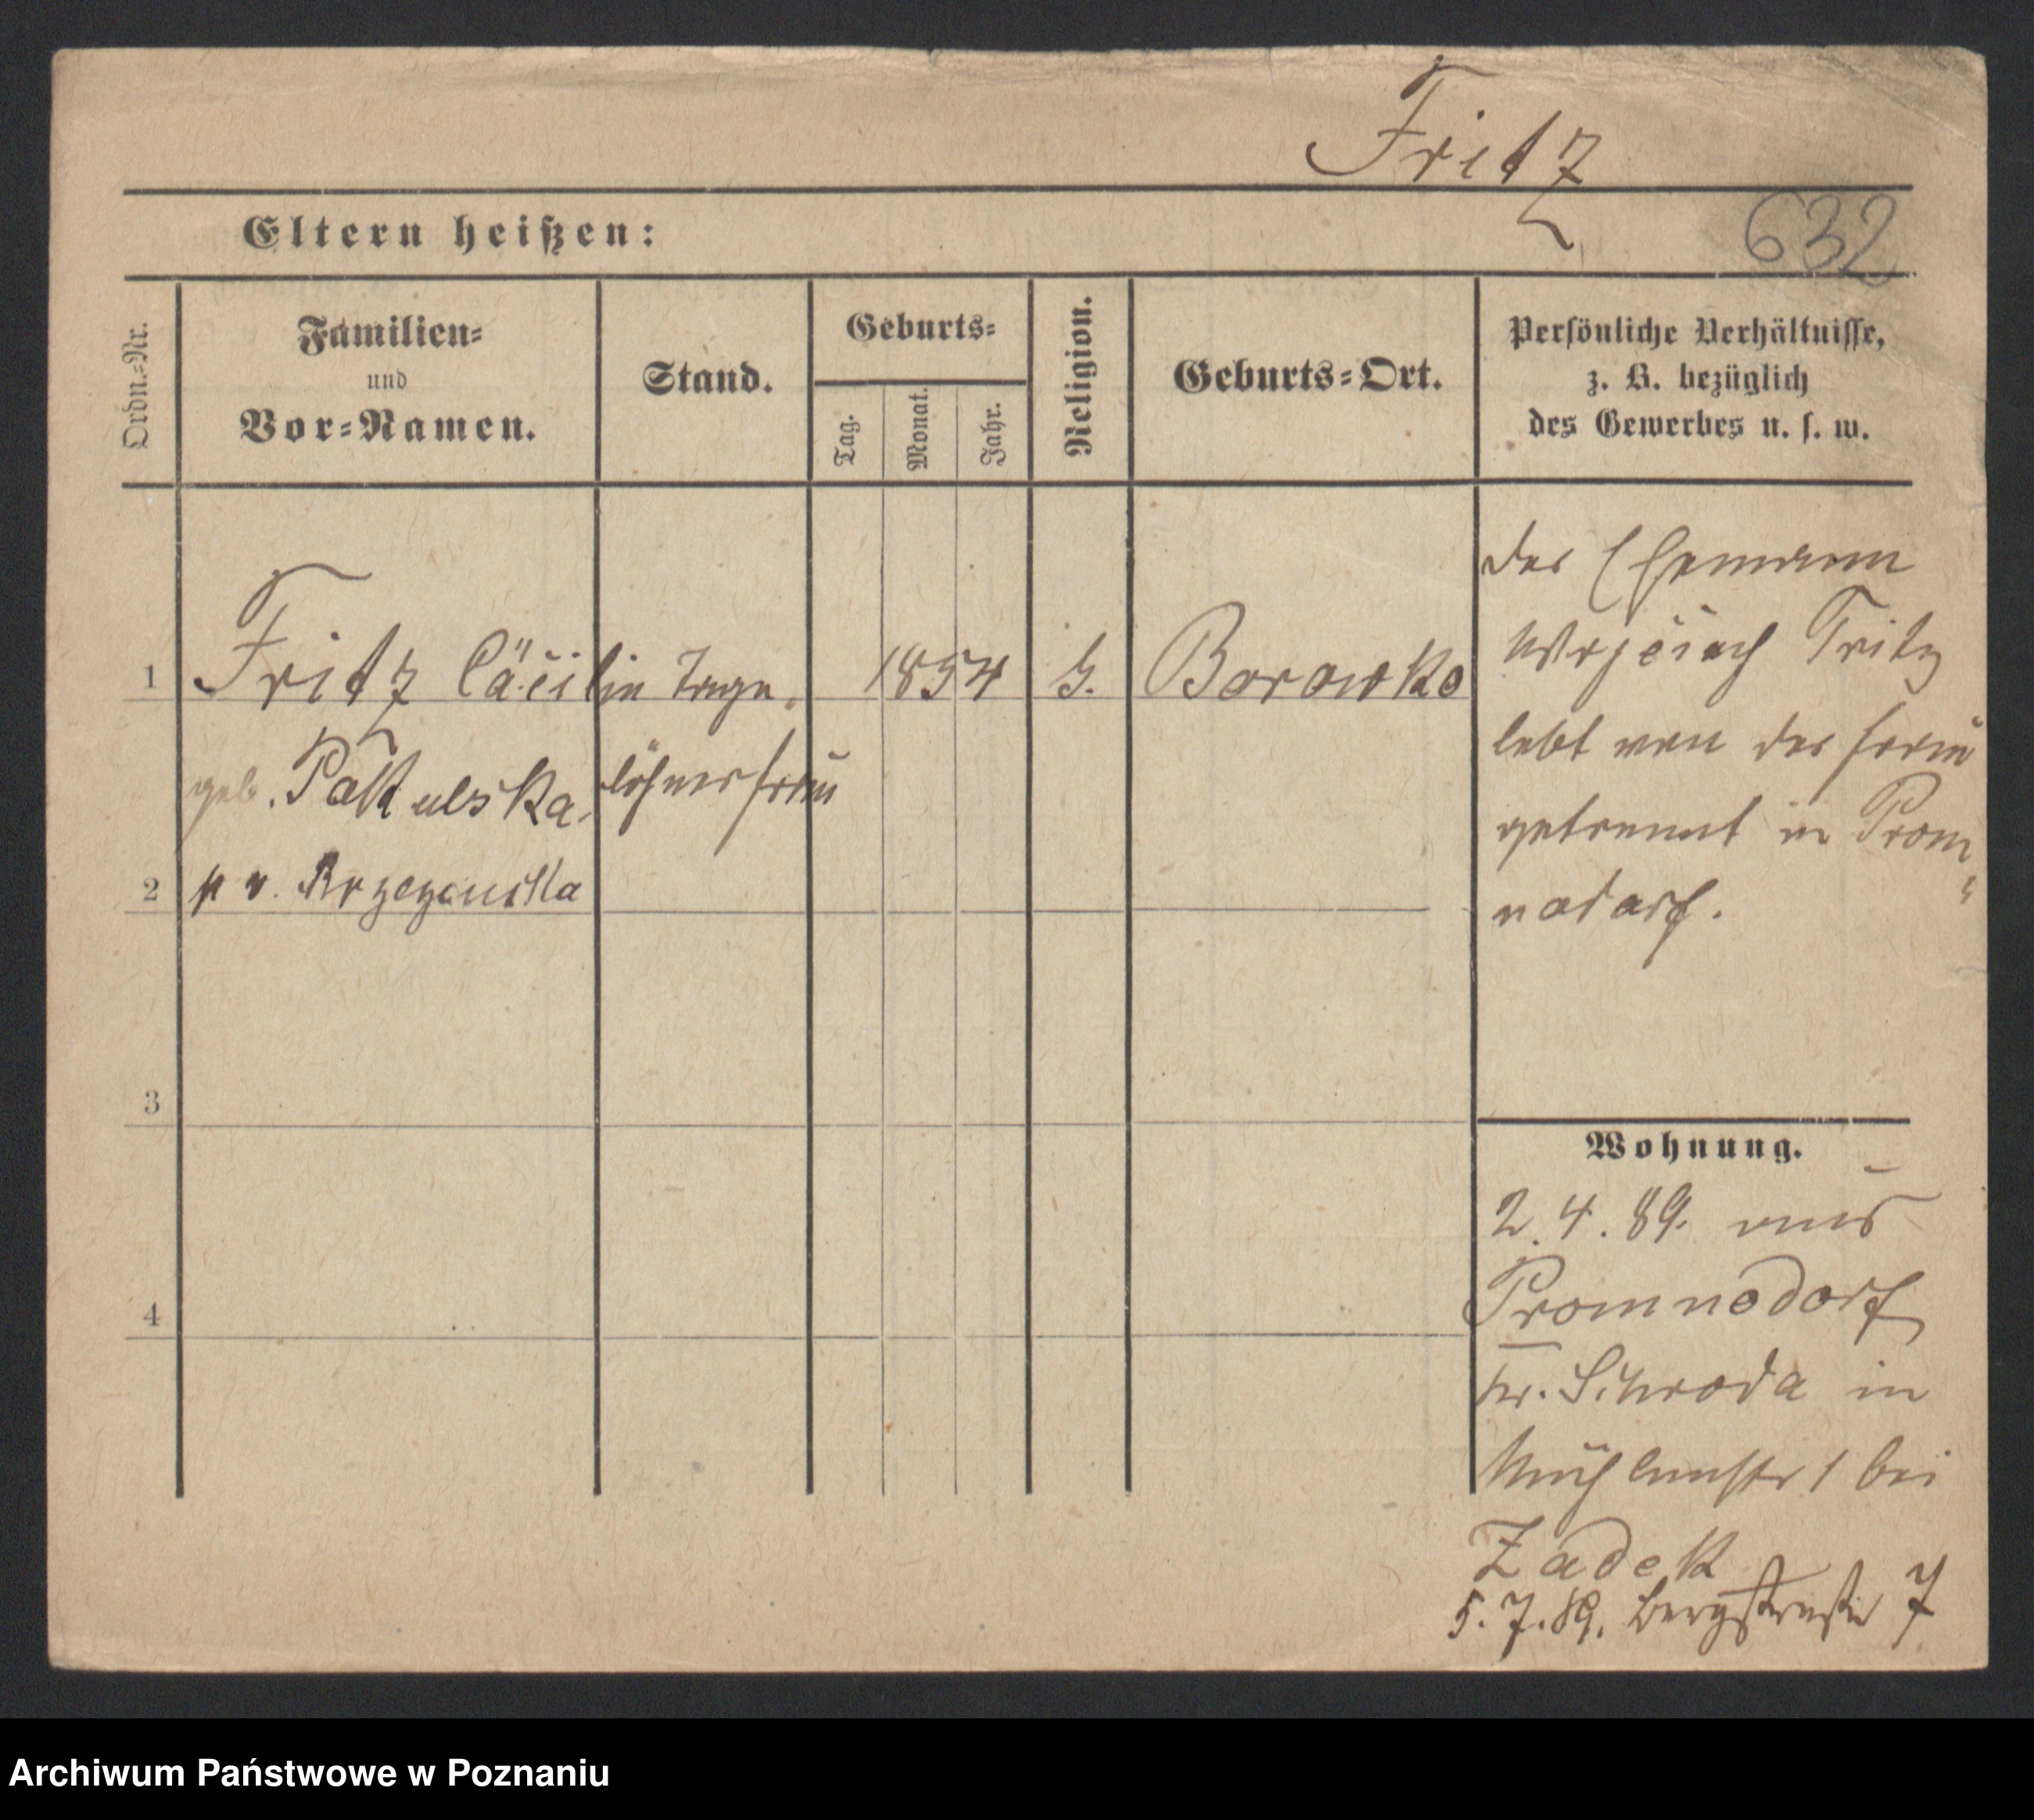 Fritz
632
Eltern heißen:
Ordn.-Nr.
Familien-
und
Vor-Namen.
Stand.
Geburts-
Tag.
Monat.
Jahr.
Religion.
Geburts-Ort.
Persönliche Verhältnisse,
z. B. bezüglich
des Gewerbes u. s. w.
1
Fritz Cäcilie
geb. Patulska
2
p v.
Tage-
löhnerfrau
1854
Borowko
der Ehemann
Fritz
lebt von der Frau
getrennt in Prom-
nodorf.
3
4
Wohnung.
2.4.89. aus
Promnodorf
Kr. Schroda in
Mühlenstr 1 bei
Zadek
5.7.89. Bergstraße 7
Archiwum Państwowe w Poznaniu